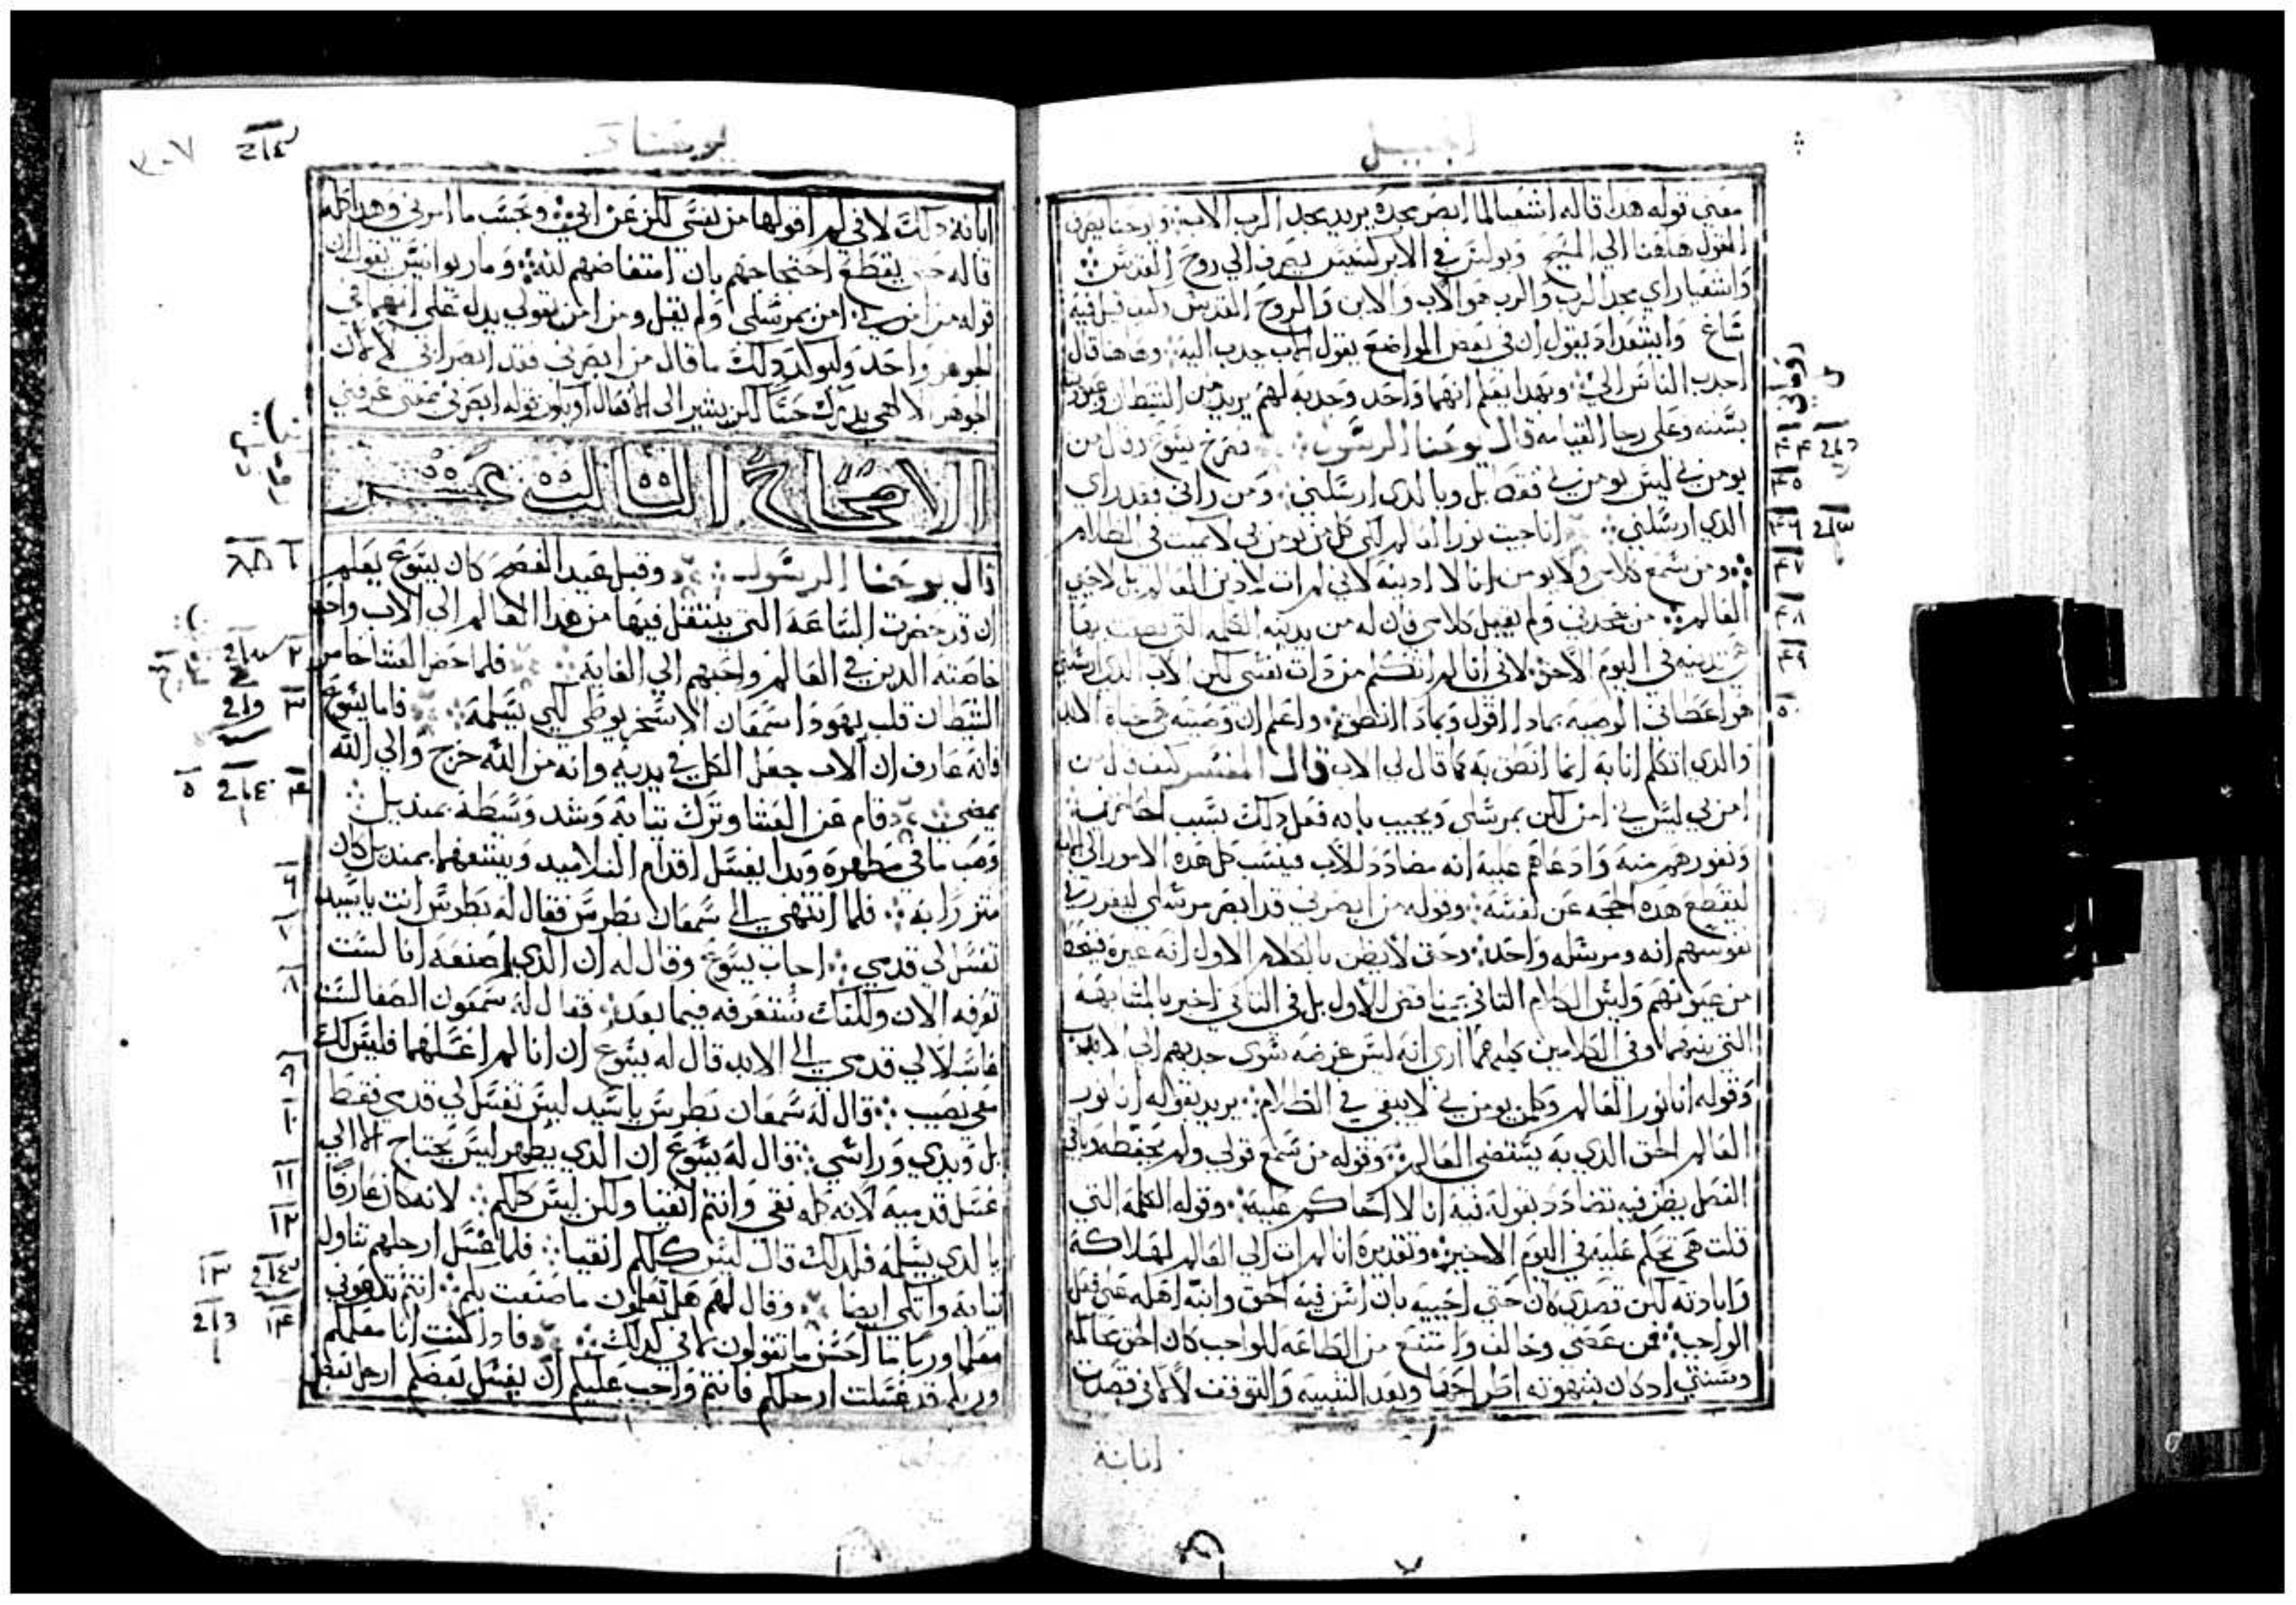 انجيل
معني قوله هدا قاله اشعيا لما ابصر مجده يريد مجد الرب الاب ويوحنا يصرف
القول هاهنا الي المسيح وبولس في الابركسيس يصرف الي روح القدس
واشعيا راي مجد الرب والرب هو الاب والابن والروح القدس
شاع يقول ان في بعض المواضع يقول الاب جدب اليه وهاهنا قال
اجدب الناس الي وبهدا يعلم انهما واحد وجدبه لهم يريد من الشيطان
بسننه وعلي رجا القيامه قال يوحنا الرسول فصرخ يسوع وقال من
يومن بي ليس يومن بي فقط بل وبالدي ارسلني ومن راني فقد راي
الدي ارسلني انا جيت نور العالم لكي كل من يومن بي لا يمكث في الظلام
ومن سمع كلامي ولا يومن انا لا ادينه لاني لم ات لادين العالم بل لاحيي
العالم من جحدني ولم يقبل كلامي فان له من يدينه الكلمه التي نطقت بها
هي تدينه في اليوم الاخر لاني انا لم اتكلم من دات نفسي لكن الاب الدي ارسلني
هو اعطاني الوصيه بمادا اقول وبمادا انطق واعلم ان وصيته هي حياة الابد
والدي اتكلم انا به انما انطق به كما قال لي الاب قال المفسر كيف قال من
امن بي ليس بي امن لكن بمرسلي ويجيب بانه فعل دلك بسبب
ونفورهم منه وادعاهم عليه انه مضادد للاب فينسب كل هده الامور الي
ليقطع هده الحجه عن نفسه وقوله من ابصرني قد ابصر مرسلي ليقرر في
نفوسهم انه ومرسله واحد وحتي لا يظن بالكلام الاول انه غيره
من عيونهم وليس الكلام التاني مناقض للاول بل في التاني اخبر بالمشابهه
التي بينهما وفي الكلامين كليهما اري انه ليس غرضه سوي جدبهم الي الاب
وقوله انا نور العالم وكلمن يومن بي لا يبقي في الظلام يريد بقوله انا نور
العالم الحق الدي به يستضي العالم وقوله من سمع قولي ولم يحفظه
الفصل يظن فيه تضادد بقوله فيه انا لا احاكم عليه وقوله الكلمه التي
قلت هي تحكم عليه في اليوم الاخير وتقديره انا لم ات الي العالم لهلاكه
وابادته لكن قصدي كان حتي احييه بان انشر فيه الحق وانبه اهله علي فعل
الواجب فمن عصي وخالف وامتنع من الطاعه للواجب كان الحق
وبعد التنبيه والتوقف لا لاني قصدت
امانة
يوحنا
٣٠٧
امانة دلك لاني لم اقولها من نفسي لكن عن ابي وبحسب ما امرني وهدا كله
قاله حتي يقطع احتجاجهم بان امتعاضهم لله وماريوانيس يقول ان
قوله من امن بي امن بمرسلي ولم يقل ومن امن بقولي يدل علي انهما في
الجوهر واحد وليوكد دلك ما قال من ابصرني فقد ابصر ابي لا لان
الجوهر الالاهي يدرك حسا لكن يشير الي الافعال او يكون قوله ابصرني بمعني عرفني
الاصحاح التالت عشر
قال يوحنا الرسول وقبل عيد الفصح كان يسوع يعلم
ان قد حضرت الساعه التي ينتقل فيها من هدا العالم الي الاب واحب
خاصته الدين في العالم واحبهم الي الغايه فلما حضر العشا خامر
الشيطان قلب يهودا سمعان الاسخريوطي لكي يسلمه فاما يسوع
فانه عارف ان الاب جعل الكل في يديه وانه من الله خرج والي الله
يمضي قام عن العشا وترك تيابه وشد وسطه بمنديل
وصب ما في مطهره وبدا يغسل اقدام التلاميد وينشفها بمنديل كان
متزرا به فلما انتهي الي سمعان بطرس فقال له بطرس انت ياسيد
تغسل لي قدمي اجاب يسوع وقال له ان الدي اصنعه انا لست
تعرفه الان ولكنك ستعرفه فيما بعد فقال له سمعون الصفا لست
غاسلا لي قدمي الي الابد قال له يسوع ان انا لم اغسلهما فليس لك
معي نصيب قال له سمعان بطرس ياسيد ليس تغسل لي قدمي فقط
بل ويدي وراسي قال له يسوع ان الدي يطهر ليس يحتاج الا الي
غسل قدميه لانه كله نقي وانتم انقيا ولكن ليس كلكم لانه كان عارفا
بالدي يسلمه فلدلك قال ليس كلكم انقيا فلما غسل ارجلهم تناول
تيابه واتكي ايضا وقال لهم هل تعلمون ما صنعت بكم انتم تدعوني
معلما وربا ما احسن ما تقولون لاني كدلك فادا كنت انا معلمكم
وربكم قد غسلت ارجلكم فانتم واجب عليكم ان يغسل بعضكم ارجل بعض